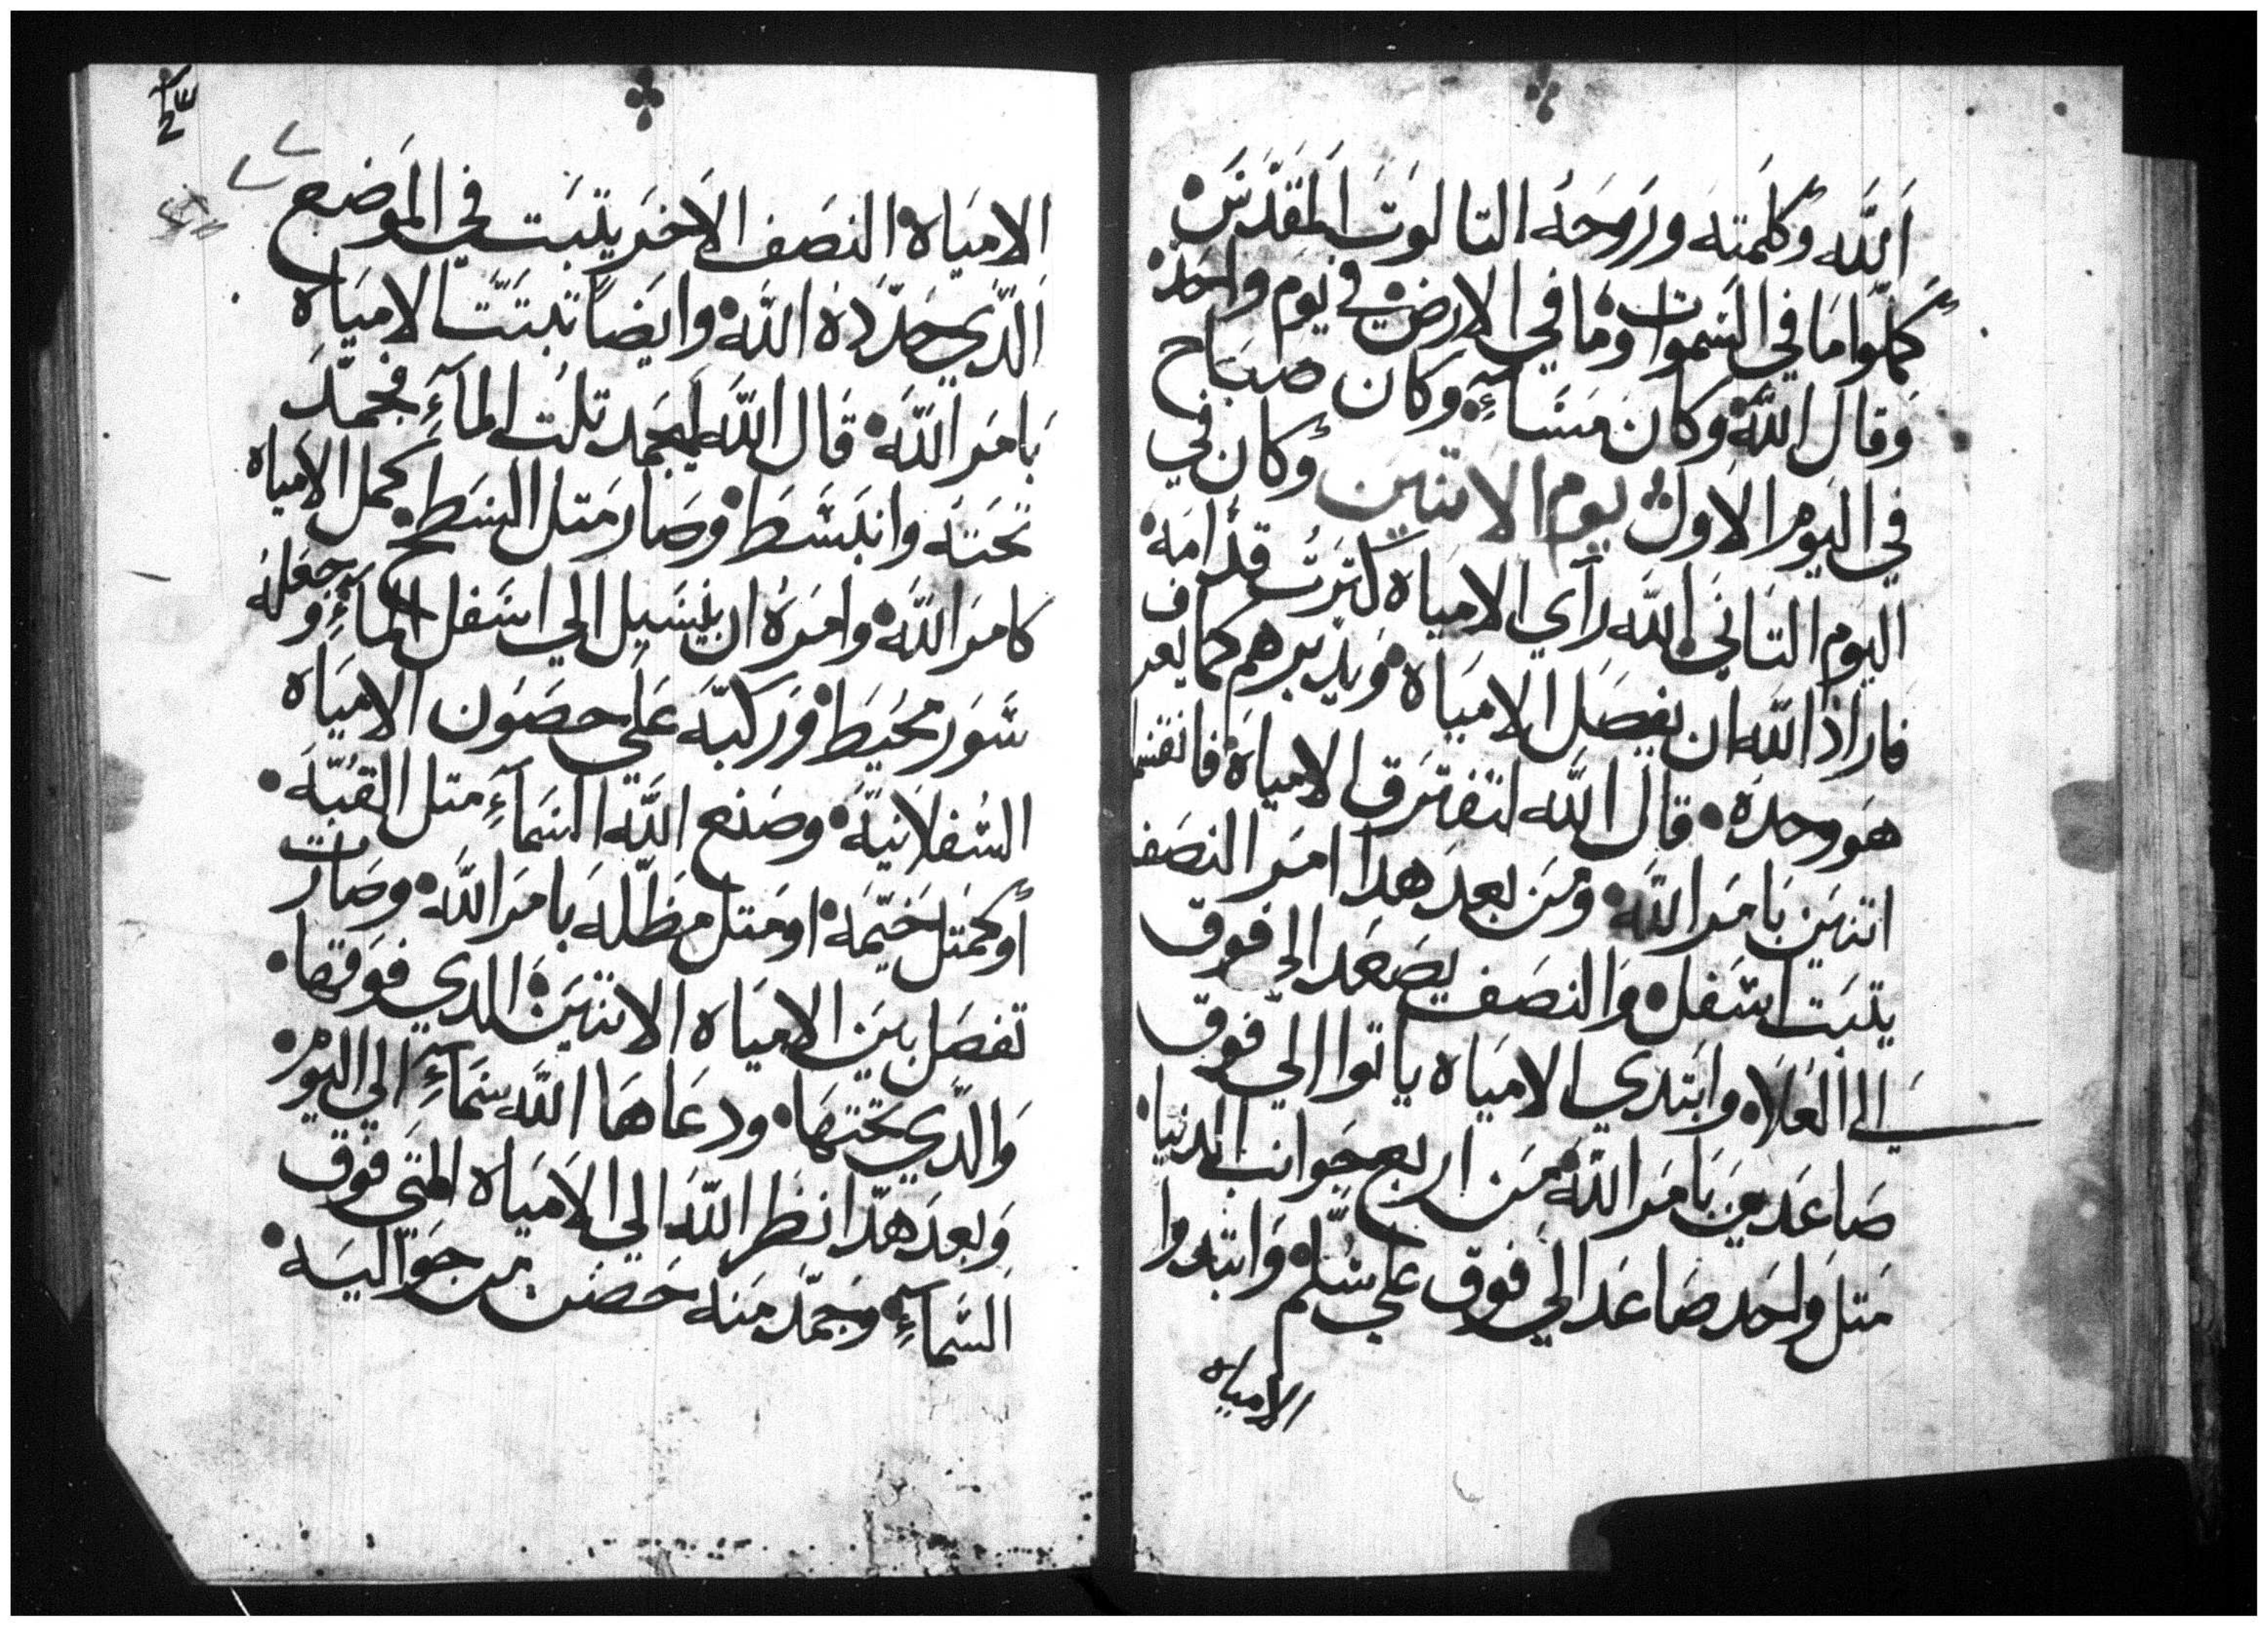 اَللَّه وَكلَمتهَ ورَوحَهُ التالوَت المقَدَّسَ۰
كملَّوا مَا في السَموات وَمَا في الارض في يَوم واحَد۰
وَقال اللَّه۰ وَكانَ مَسَآءٍ۰ وَكان صَبَاح
في اليَوم الاَول۰ يوم الاتنين وَكان في
اليَوم التَاني۰ اللَّه رآي الامَياه كترَتْ قدَامَهُ۰
فارادَ اللَّه ان يفصَل الامَيَاه۰ وَيدَبرهم كمَا يعرف
هَو وحدَه۰ قالَ اللَّه لتفتَرق الامياهَ۰ فانقسَمَا
اتنينَ بَامَر اللَّه۰ ومَن بعدَ هدَا امَر النصَف
يتبَت اسَفل۰ وَالنصَف يصَعَد الي فَوق
الي العَلَا۰ وابَتدي الامَياه ياتوا الي فَوق
صَاعَدينَ بَامَر اللَّه۰ مَن اربع جَوانب الدنيا۰
مَتل وَاحَد صَاعَد الي فَوق علي سُلم۰ وَابتدوا
الامياه
الامَيَاه۰ النصَف الاخَر يتبَت في المَوَضع
الَدّي حَدَّدَهُ اللَّه۰ وايَضاً تبتَّت الامَيَاه
بَامَر اللَّه۰ قَال اللَّه ليجَمد تلُت المآءِ فجمَّدَ
تحَتهَ وانبَسَطَ۰ وَصَار مَتل البسَط يحمل الامياه
كامَر اللَّه۰ وامَرَهُ ان يسَيل الي اسَفل المآءِ وجعَلهُ
سَور محُيَط۰ وَرَكبَّه عَلي حصَون الامَيَاه
السُفلاَنيَّة۰ وصَنَع اللَّه السَمآءِ متل القُبَّة۰
أوَكمَتل خَيّمَة۰ اومَتل مَظَلّلهَ بَامَر اللَّه۰ وصَارَت
تفصَل بيَن الامَيَاه الاتنيَن۰ الدي فَوَقهَا۰
وَالدّي تحَتهَا۰ ودعَاهَا اللَّه سَمآءِ الي اليَوم۰
وَبعَد هدَّا نظَر اللَّه الي الامَيَاه التي فَوق
السَمآءِ۰ وَجَمَّد منَه حَصَن من حَوَاليَه۰